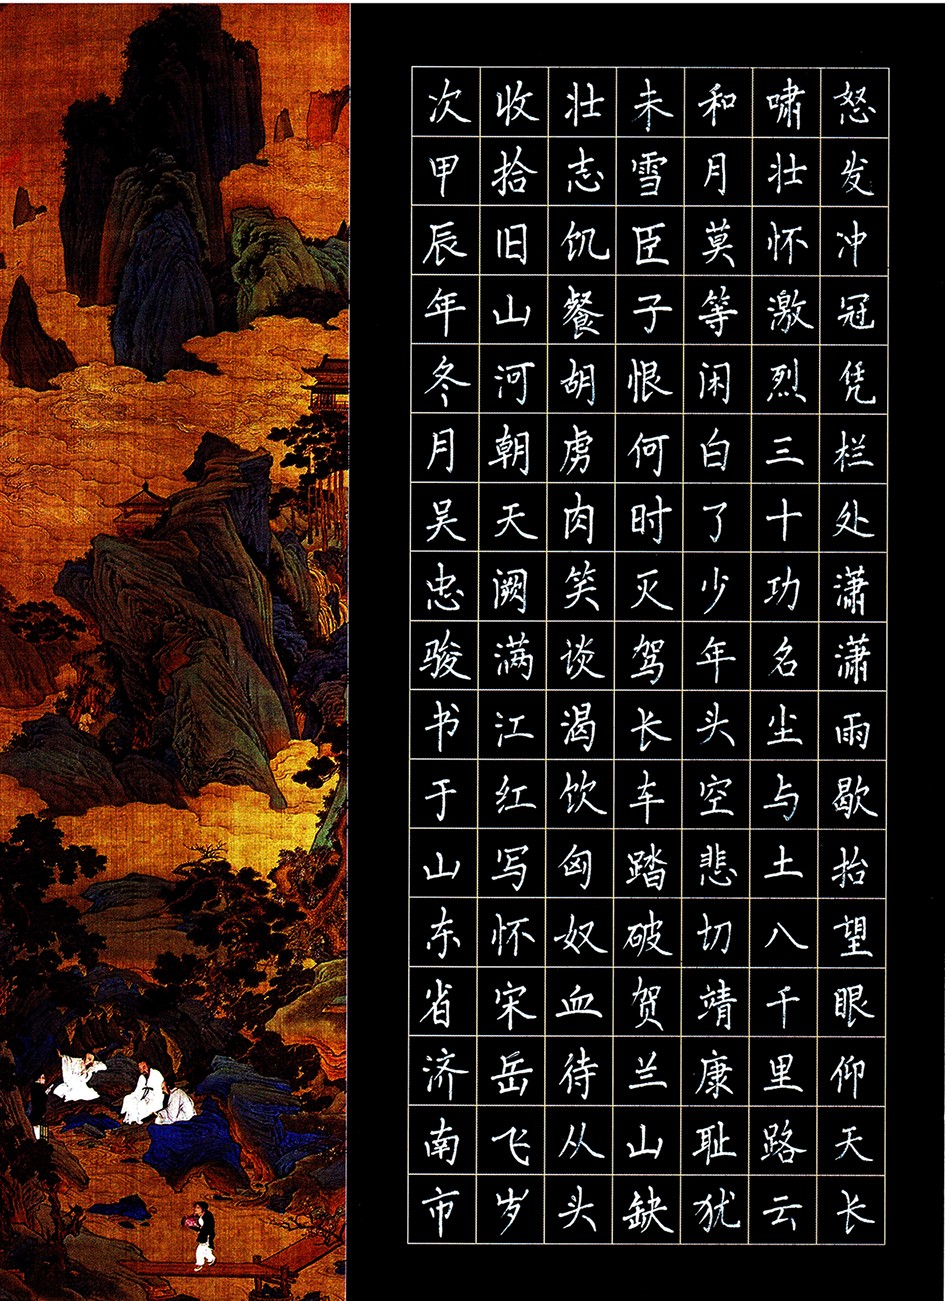 怒发冲冠凭栏处潇潇雨歇抬望眼仰天长
啸壮怀激烈三十功名尘与土八千里路云
和月莫等闲白了少年头空悲切靖康耻犹
未雪臣子恨何时灭驾长车踏破贺兰山缺
壮志饥餐胡虏肉笑谈渴饮匈奴血待从头
收拾旧山河朝天阙满江红写怀宋岳飞岁
次甲辰年冬月吴忠骏书于山东省济南市